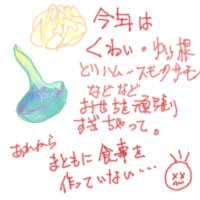 今年は
くわい・ゆり根
とりハム・スモークサーモン
などなど
おせちを頑張り
すぎちゃって。
あれから
まともに食事を
作っていない・・・・